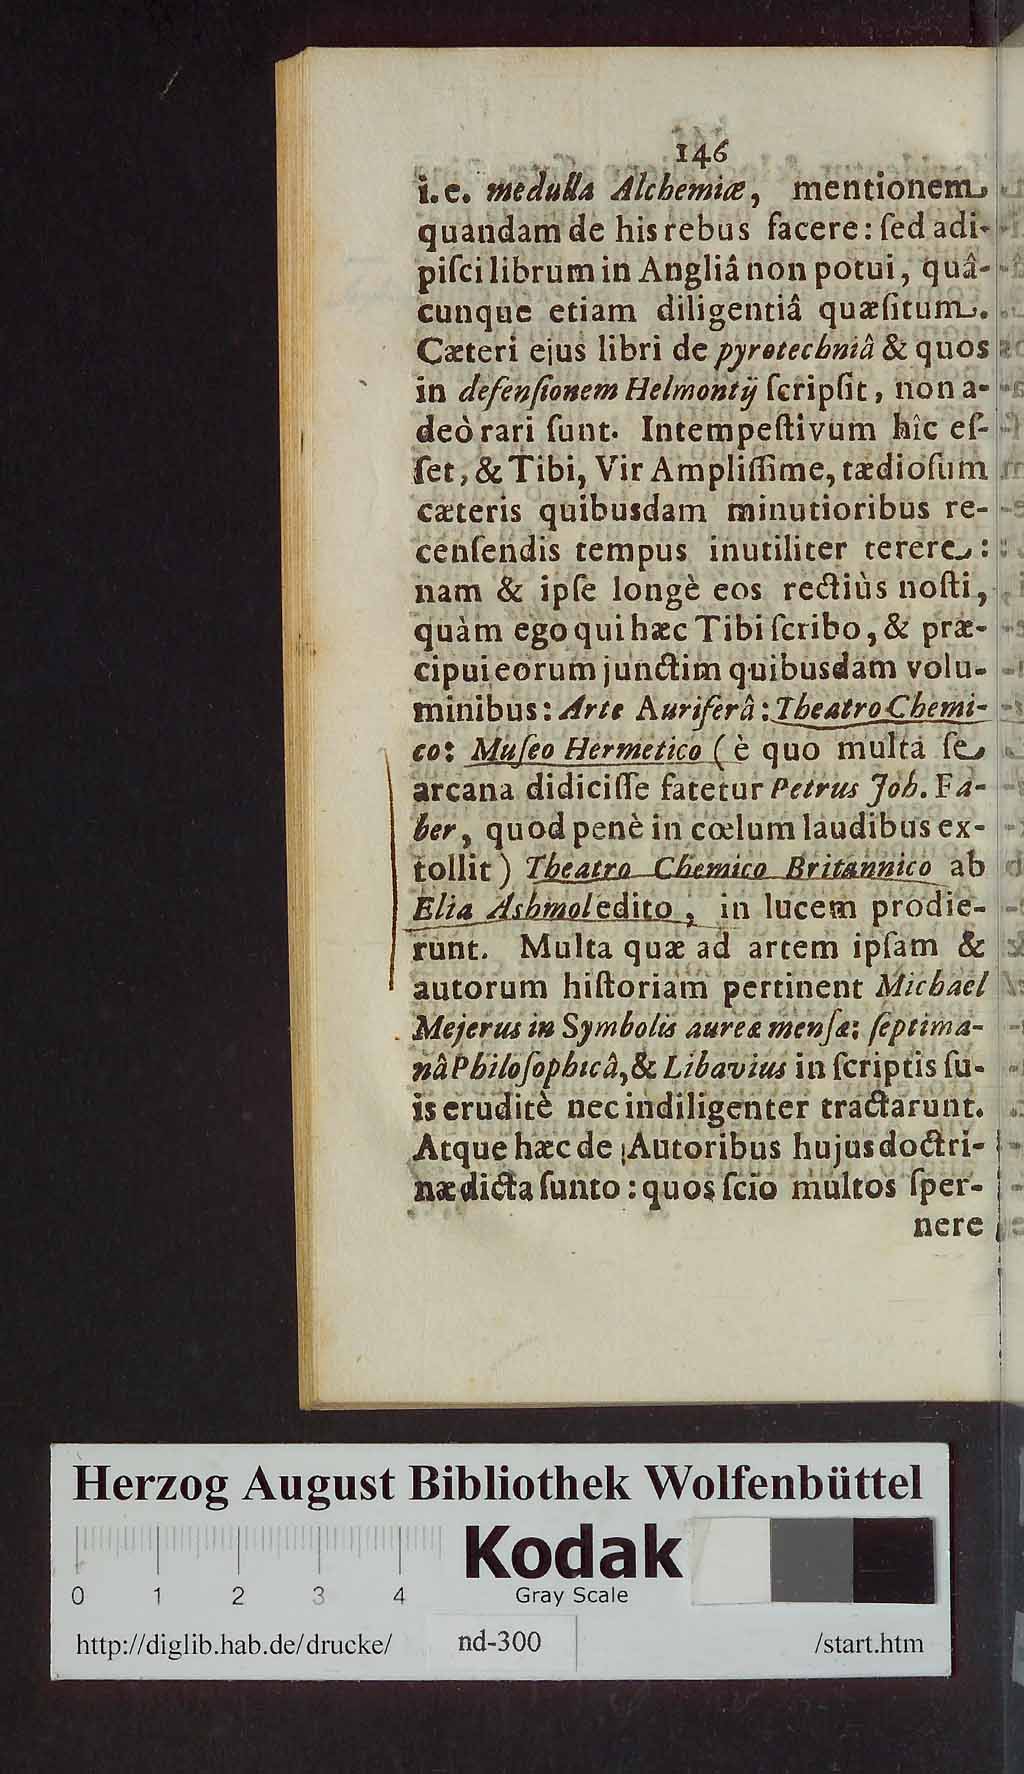 146
i. e. medulla Alchemiæ, mentionem
quandam de his rebus facere: ſed adi-
piſci librum in Angliâ non potui, quâ-
cunque etiam diligentiâ quæſitum.
Cæteri ejus libri de pyrotechniâ & quos
in defenſionem Helmontij ſcripſit, non a-
deò rari ſunt. Intempeſtivum hîc eſ-
ſet, & Tibi, Vir Ampliſſime, tædioſum
cæteris quibusdam minutioribus re-
cenſendis tempus inutiliter terere:
nam & ipſe longè eos rectiùs noſti,
quàm ego qui hæc Tibi ſcribo, & præ-
cipui eorum junctim quibusdam volu-
minibus: Arte Auriferâ: Theatro Chemi-
co: Muſeo Hermetico (è quo multa ſe
arcana didiciſſe fatetur Petrus Joh. Fa-
ber, quod penè in cœlum laudibus ex-
tollit) Theatro Chemico Britannico ab
Elia Ashmol edito, in lucem prodie-
runt. Multa quæ ad artem ipſam &
autorum hiſtoriam pertinent Michaël
Mejerus in Symbolis aureæ menſæ: ſeptima-
nâ Philoſophicâ, & Libavius in ſcriptis ſu-
is eruditè nec indiligenter tractarunt.
Atque hæc de Autoribus hujus doctri-
næ dicta ſunto: quos ſcio multos ſper-
nere
Herzog August Bibliothek Wolfenbüttel
0 1 2 3 4
Kodak
Gray Scale
http://diglib.hab.de/drucke/ nd-300 /start.htm